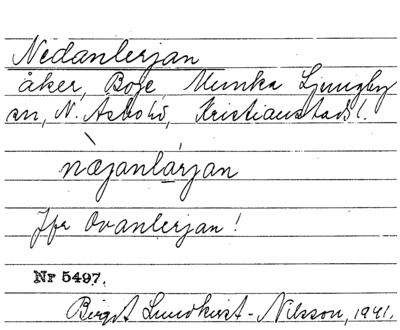 Nedanlerjan
åker, Boje, Munka Ljungby
sn, N. Åsbo hd, Kristianstads l.
næjanlárjan
Jfr Ovanlerjan!
Nr 5497.
Birgit Lundkvist-Nilsson, 1941.